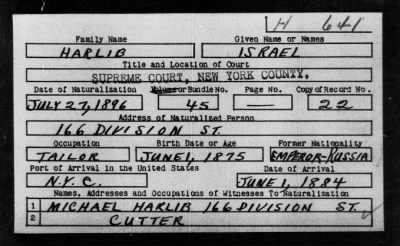 H 641
Family Name Given Name or Names
HARLIB ISRAEL
Title and Location of Court
SUPREME COURT, NEW YORK COUNTY.
Date of Naturalization Volume or Bundle No. Page No. Copy of Record No.
JULY 27, 1896 45 — 22
Address of Naturalized Person
166 DIVISION ST.
Occupation Birth Date or Age Former Nationality
TAILOR JUNE 1, 1875 EMPEROR-RUSSIA
Port of Arrival in the United States Date of Arrival
N.Y.C. JUNE 1, 1884
Names, Addresses and Occupations of Witnesses To Naturalization
1 MICHAEL HARLIB 166 DIVISION ST.
2 CUTTER